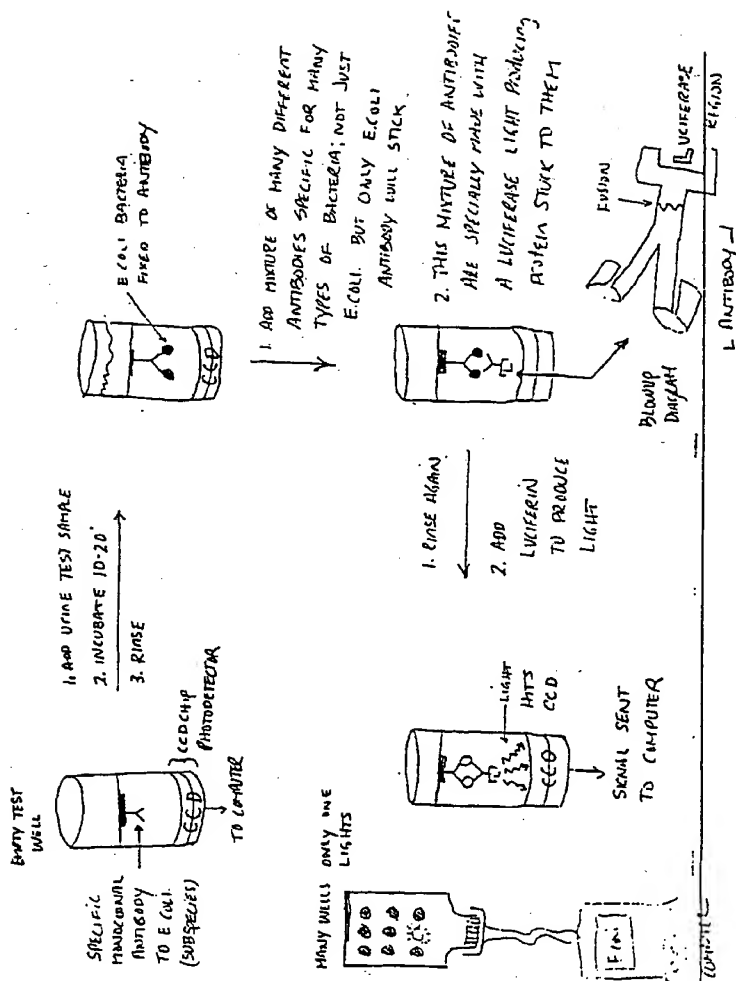 EMPTY TEST
WELL
SPECIFIC
MONOCLONAL
ANTIBODY
TO E COLI.
(SUBSPECIES)
CCD
CCD CHIP
PHOTODETECTOR
TO COMPUTER
1. ADD URINE TEST SAMPLE
2. INCUBATE 10-20'
3. RINSE
CCD
E COLI BACTERIA
FIXED TO ANTIBODY
1. ADD MIXTURE OF MANY DIFFERENT
ANTIBODIES SPECIFIC FOR MANY
TYPES OF BACTERIA; NOT JUST
E.COLI. BUT ONLY E.COLI
ANTIBODY WILL STICK.
2. THIS MIXTURE OF ANTIBODIES
ARE SPECIALLY MADE WITH
A LUCIFERASE LIGHT PRODUCING
PROTEIN STUCK TO THEM
BLOWUP
DIAGRAM
FUSION
LUCIFERASE
REGION
ANTIBODY
1. RINSE AGAIN
2. ADD
LUCIFERIN
TO PRODUCE
LIGHT
LIGHT
HITS
CCD.
CCD
SIGNAL SENT
TO COMPUTER
MANY WELLS ONLY ONE
LIGHTS